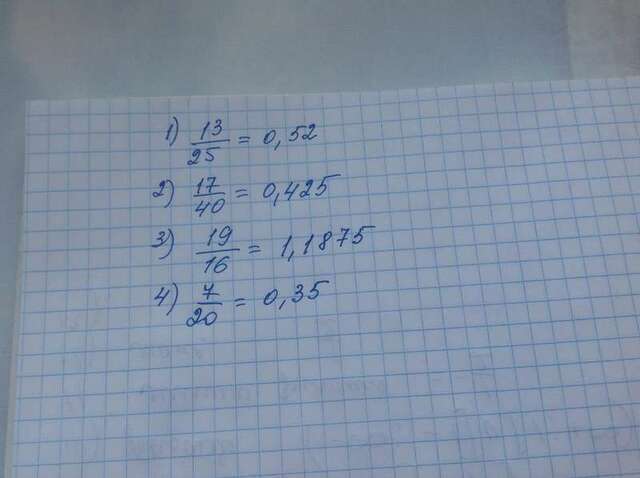 1) 13/25 = 0,52
2) 17/40 = 0,425
3) 19/16 = 1,1875
4) 7/20 = 0,35